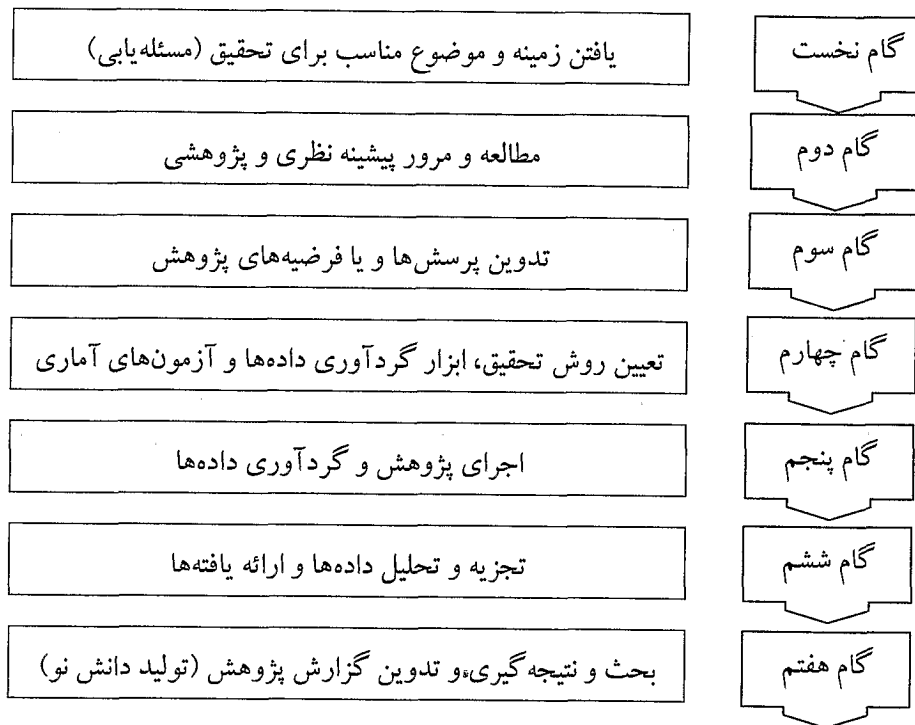 گام نخست
یافتن زمینه و موضوع مناسب برای تحقیق (مسئله‌یابی)
گام دوم
مطالعه و مرور پیشینه نظری و پژوهشی
گام سوم
تدوین پرسش‌ها و یا فرضیه‌های پژوهش
گام چهارم
تعیین روش تحقیق، ابزار گردآوری داده‌ها و آزمون‌های آماری
گام پنجم
اجرای پژوهش و گردآوری داده‌ها
گام ششم
تجزیه و تحلیل داده‌ها و ارائه یافته‌ها
گام هفتم
بحث و نتیجه‌گیری و تدوین گزارش پژوهش (تولید دانش نو)